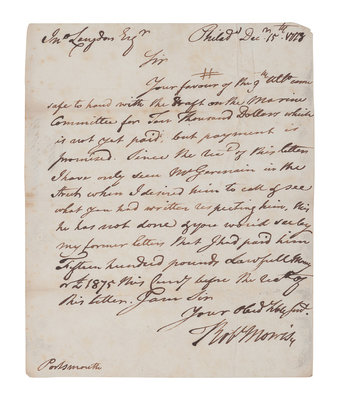 Jno Langdon Esqr Philada Decr 15th 1778
Sir
Your favour of the 9th Ulto came
safe to hand with the Draft on the Marine
Committee for Four Thousand Dollars which
is not yet paid, but payment is
promised. Since the rect of this letter
I have only seen Mr Germain in the
Street when I desired him to call & see
what you had written respecting him, this
he has not done & you would see by
my former letters that I had paid him
Fifteen hundred pounds Lawfull Money
or £ 1875 this Curry before the rect of
this letter. I am Sir
Your Obed hble Servt
Robt Morris
Portsmouth